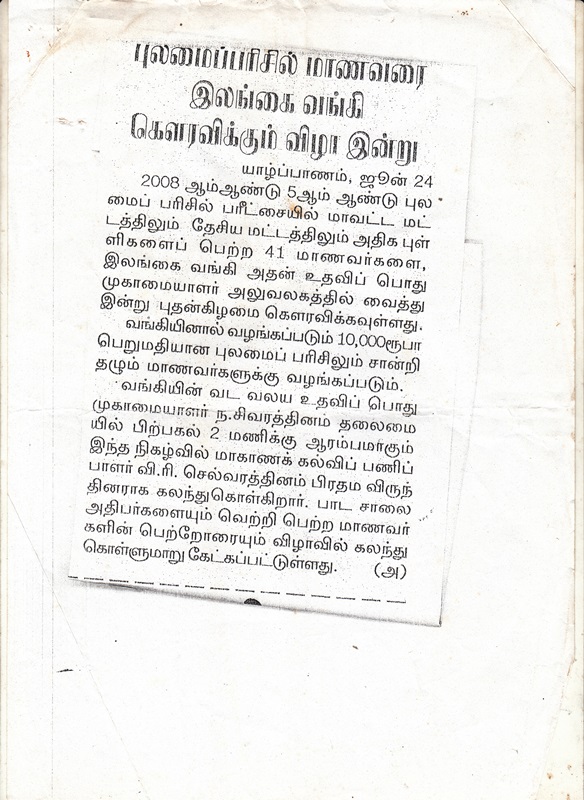 புலமைப்பரிசில் மாணவரை
இலங்கை வங்கி
கௌரவிக்கும் விழா இன்று
யாழ்ப்பாணம், ஜூன் 24
2008 ஆம்ஆண்டு 5ஆம் ஆண்டு புல
மைப் பரிசில் பரீட்சையில் மாவட்ட மட்
டத்திலும் தேசிய மட்டத்திலும் அதிக புள்
ளிகளைப் பெற்ற 41 மாணவர்களை,
இலங்கை வங்கி அதன் உதவிப் பொது
முகாமையாளர் அலுவலகத்தில் வைத்து
இன்று புதன்கிழமை கௌரவிக்கவுள்ளது.
வங்கியினால் வழங்கப்படும் 10,000ரூபா
பெறுமதியான புலமைப் பரிசிலும் சான்றி
தழும் மாணவர்களுக்கு வழங்கப்படும்.
வங்கியின் வட வலய உதவிப் பொது
முகாமையாளர் ந.சிவரத்தினம் தலைமை
யில் பிற்பகல் 2 மணிக்கு ஆரம்பமாகும்
இந்த நிகழ்வில் மாகாணக் கல்விப் பணிப்
பாளர் வி.ரி. செல்வரத்தினம் பிரதம விருந்
தினராக கலந்துகொள்கிறார். பாட சாலை
அதிபர்களையும் வெற்றி பெற்ற மாணவர்
களின் பெற்றோரையும் விழாவில் கலந்து
கொள்ளுமாறு கேட்கப்பட்டுள்ளது. (அ)